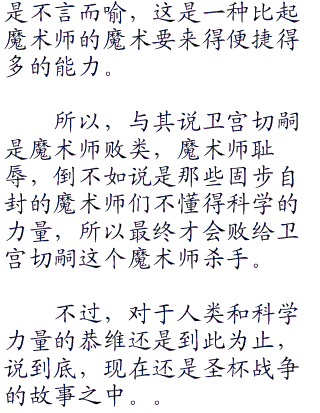 是不言而喻，这是一种比起
魔术师的魔术要来得便捷得
多的能力。
所以，与其说卫宫切嗣
是魔术师败类，魔术师耻
辱，倒不如说是那些固步自
封的魔术师们不懂得科学的
力量，所以最终才会败给卫
宫切嗣这个魔术师杀手。
不过，对于人类和科学
力量的恭维还是到此为止，
说到底，现在还是圣杯战争
的故事之中。。